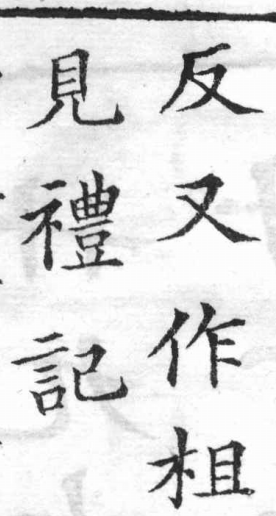 反又作柤
見禮記